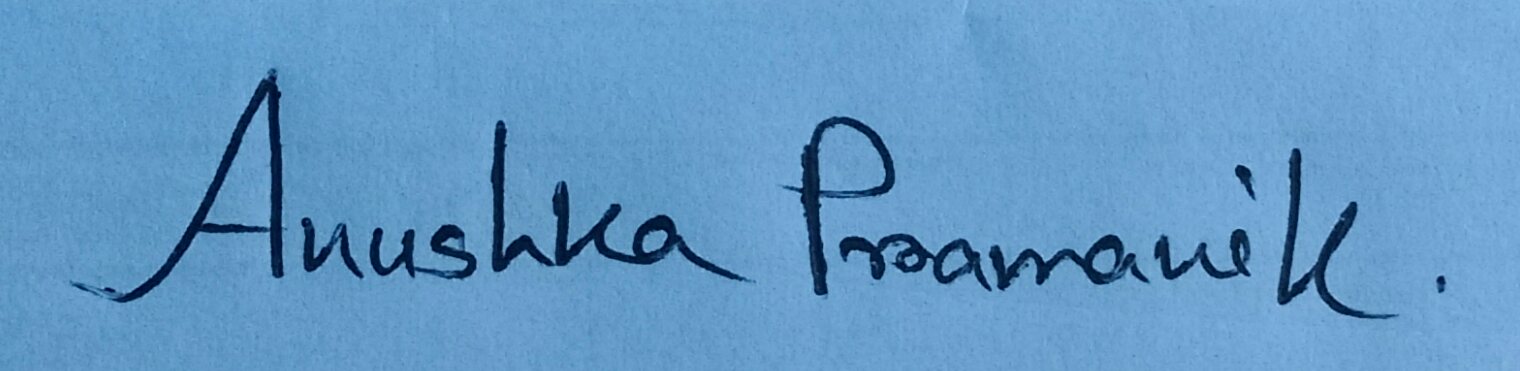 Anushka Pramanik.